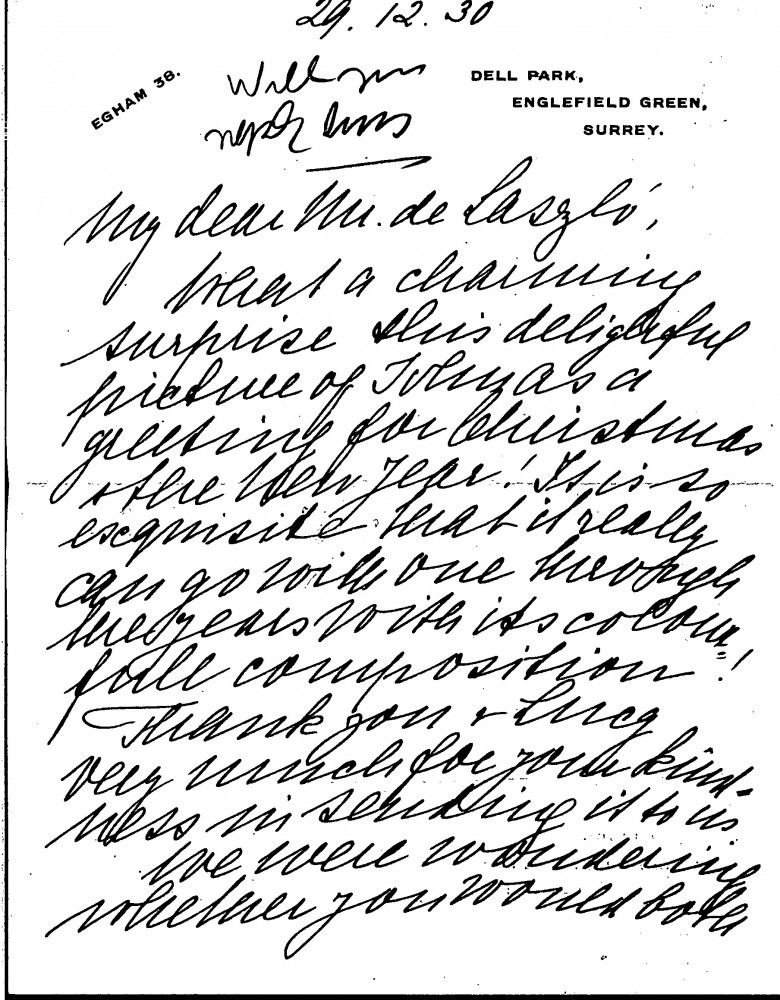 29. 12. 30
EGHAM 38.
DELL PARK,
ENGLEFIELD GREEN,
SURREY.
Will you
reply
My dear Mr. de László,
What a charming
surprise this delightful
picture of John as a
greeting for Christmas
& the New Year! It is so
exquisite that it really
can go with one through
the years with its colour=
full composition!
Thank you & Lucy
very much for your kind-
ness in sending it to us
We were wondering
whether you would both